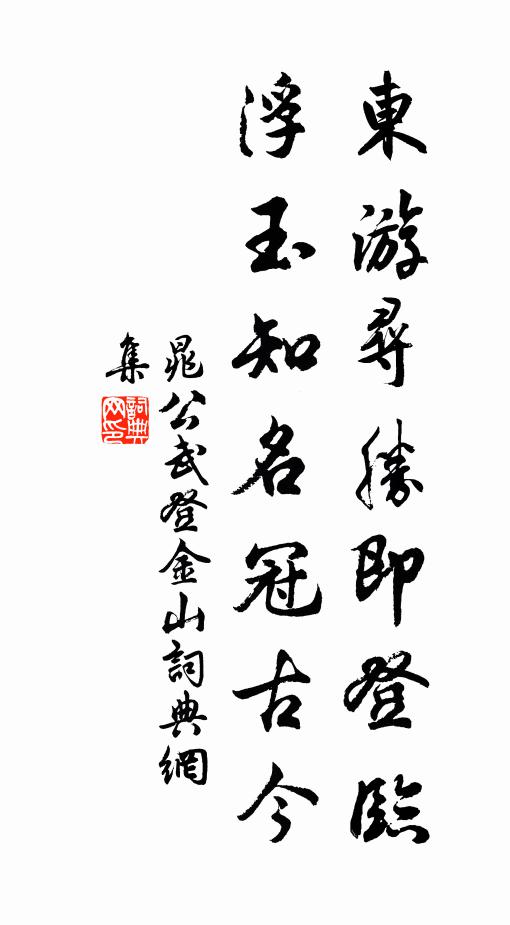 東游尋勝即登臨
浮玉知名冠古今
晁公武登金山詞典網
集
詞典
网印